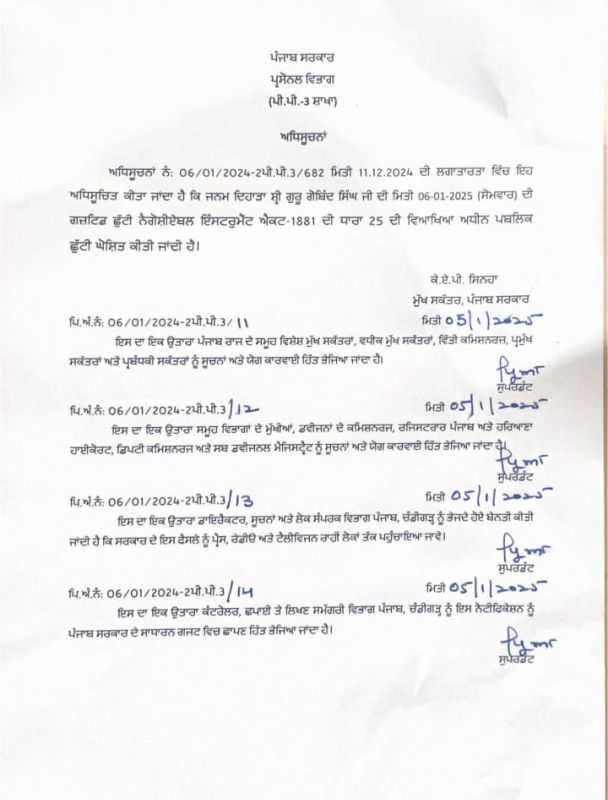 ਪੰਜਾਬ ਸਰਕਾਰ
ਪ੍ਰਸੋਨਲ ਵਿਭਾਗ
(ਪੀ.ਪੀ.-3 ਸ਼ਾਖਾ)
ਅਧਿਸੂਚਨਾਂ
ਅਧਿਸੂਚਨਾਂ ਨੰ: 06/01/2024-2ਪੀ.ਪੀ.3/682 ਮਿਤੀ 11.12.2024 ਦੀ ਲਗਾਤਾਰਤਾ ਵਿੱਚ ਇਹ
ਅਧਿਸੂਚਿਤ ਕੀਤਾ ਜਾਂਦਾ ਹੈ ਕਿ ਜਨਮ ਦਿਹਾੜਾ ਸ਼੍ਰੀ ਗੁਰੂ ਗੋਬਿੰਦ ਸਿੰਘ ਜੀ ਦੀ ਮਿਤੀ 06-01-2025 (ਸੋਮਵਾਰ) ਦੀ
ਗਜ਼ਟਿਡ ਛੁੱਟੀ ਨੈਗੋਸ਼ੀਏਬਲ ਇੰਸਟਰੁਮੈਂਟ ਐਕਟ-1881 ਦੀ ਧਾਰਾ 25 ਦੀ ਵਿਆਖਿਆ ਅਧੀਨ ਪਬਲਿਕ
ਛੁੱਟੀ ਘੋਸ਼ਿਤ ਕੀਤੀ ਜਾਂਦੀ ਹੈ।
ਕੇ.ਏ.ਪੀ. ਸਿਨਹਾ
ਮੁੱਖ ਸਕੱਤਰ, ਪੰਜਾਬ ਸਰਕਾਰ
ਪਿ.ਅੰ.ਨੰ: 06/01/2024-2ਪੀ.ਪੀ.3/11 ਮਿਤੀ 05/1/2025
ਇਸ ਦਾ ਇਕ ਉਤਾਰਾ ਪੰਜਾਬ ਰਾਜ ਦੇ ਸਮੂਹ ਵਿਸ਼ੇਸ਼ ਮੁੱਖ ਸਕੱਤਰਾਂ, ਵਧੀਕ ਮੁੱਖ ਸਕੱਤਰਾਂ, ਵਿੱਤੀ ਕਮਿਸ਼ਨਰਜ਼, ਪ੍ਰਮੁੱਖ
ਸਕੱਤਰਾਂ ਅਤੇ ਪ੍ਰਬੰਧਕੀ ਸਕੱਤਰਾਂ ਨੂੰ ਸੂਚਨਾਂ ਅਤੇ ਯੋਗ ਕਾਰਵਾਈ ਹਿੱਤ ਭੇਜਿਆ ਜਾਂਦਾ ਹੈ।
ਸੁਪਰਡੰਟ
ਪਿ.ਅੰ.ਨੰ: 06/01/2024-2ਪੀ.ਪੀ.3/12 ਮਿਤੀ 05/1/2025
ਇਸ ਦਾ ਇਕ ਉਤਾਰਾ ਸਮੂਹ ਵਿਭਾਗਾਂ ਦੇ ਮੁੱਖੀਆਂ, ਡਵੀਜਨਾਂ ਦੇ ਕਮਿਸ਼ਨਰਜ, ਰਜਿਸਟਰਾਰ ਪੰਜਾਬ ਅਤੇ ਹਰਿਆਣਾ
ਹਾਈਕੋਰਟ, ਡਿਪਟੀ ਕਮਿਸ਼ਨਰਜ ਅਤੇ ਸਬ ਡਵੀਜਨਲ ਮੈਜਿਸਟ੍ਰੈਟ ਨੂੰ ਸੂਚਨਾਂ ਅਤੇ ਯੋਗ ਕਾਰਵਾਈ ਹਿੱਤ ਭੇਜਿਆ ਜਾਂਦਾ ਹੈ।
ਸੁਪਰਡੰਟ
ਪਿ.ਅੰ.ਨੰ: 06/01/2024-2ਪੀ.ਪੀ.3/13 ਮਿਤੀ 05/1/2025
ਇਸ ਦਾ ਇਕ ਉਤਾਰਾ ਡਾਇਰੈਕਟਰ, ਸੂਚਨਾਂ ਅਤੇ ਲੋਕ ਸੰਪਰਕ ਵਿਭਾਗ ਪੰਜਾਬ, ਚੰਡੀਗੜ੍ਹ ਨੂੰ ਭੇਜਦੇ ਹੋਏ ਬੇਨਤੀ ਕੀਤੀ
ਜਾਂਦੀ ਹੈ ਕਿ ਸਰਕਾਰ ਦੇ ਇਸ ਫੈਸਲੇ ਨੂੰ ਪ੍ਰੈਸ, ਰੇਡੀਓ ਅਤੇ ਟੈਲੀਵਿਜਨ ਰਾਹੀਂ ਲੋਕਾਂ ਤੱਕ ਪਹੁੰਚਾਇਆ ਜਾਵੇ।
ਸੁਪਰਡੰਟ
ਪਿ.ਅੰ.ਨੰ: 06/01/2024-2ਪੀ.ਪੀ.3/14 ਮਿਤੀ 05/1/2025
ਇਸ ਦਾ ਇਕ ਉਤਾਰਾ ਕੰਟਰੋਲਰ, ਛਪਾਈ ਤੇ ਲਿਖਣ ਸਮੱਗਰੀ ਵਿਭਾਗ ਪੰਜਾਬ, ਚੰਡੀਗੜ੍ਹ ਨੂੰ ਇਸ ਨੋਟੀਫਿਕੇਸ਼ਨ ਨੂੰ
ਪੰਜਾਬ ਸਰਕਾਰ ਦੇ ਸਾਧਾਰਨ ਗਜਟ ਵਿਚ ਛਾਪਣ ਹਿੱਤ ਭੇਜਿਆ ਜਾਂਦਾ ਹੈ।
ਸੁਪਰਡੰਟ